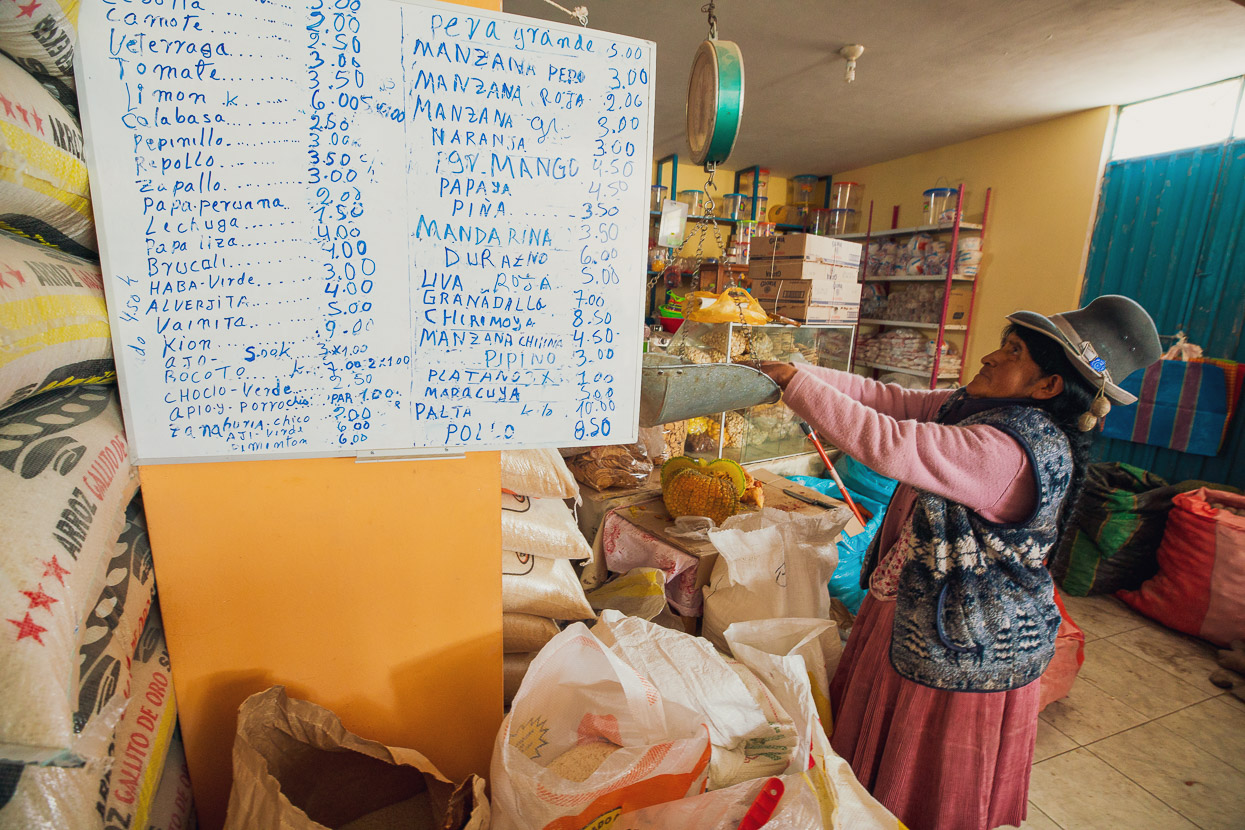 Camote 2.00
Veterraga 2.50
Tomate 3.00
Limon k 3.50
Calabasa 6.00
Pepinillo 2.50
Repollo 3.00
Zapallo 3.50
Papa-peruana 3.00
Lechuga 2.00
Papa liza 1.50
Brucoli 4.00
HABA-Verde 1.00
ALVERJITA 3.00
Vainita 4.00
Kion 5.00
AJO- 9.00
ROCOTO k
CHOCLO-Verde
apio y porrocho
zanahuria.chico 2.00
AJI-Virde 6.00
6.00
Peva grande 5.00
MANZANA PERO 3.00
MANZANA ROJA 2.00
MANZANA gr 3.00
NARANJA 3.00
MANGO 4.50
PAPAYA 4.50
PIÑA 3.50
MANDARINA 3.50
DURAZNO 6.00
UVA ROJA 5.00
GRANADALLO 7.00
CHIRIMOYA 8.50
MANZANA CHILINA 4.50
PIPINO 3.00
PLATANO X 1.00
MARACUYA
PALTA 10.00
POLLO 8.50
ARROZ GALLITO DE
GALLITO DE ORO
ARROZ
ARROZ